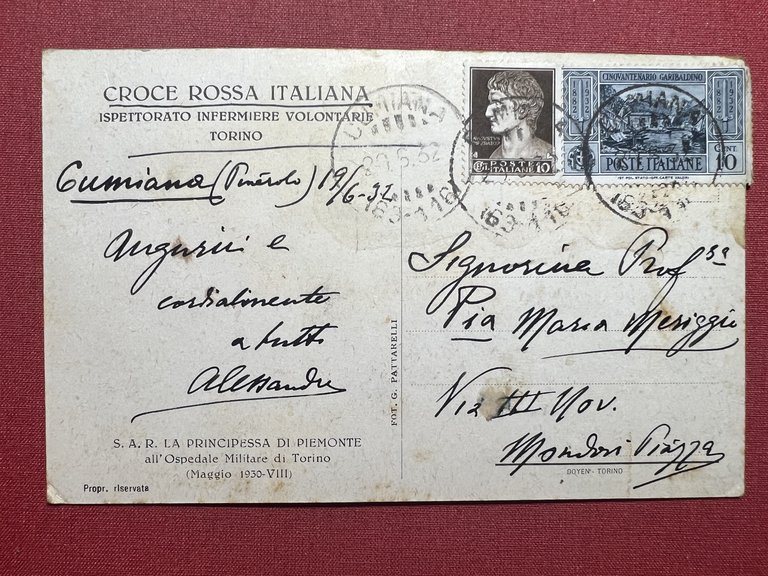 CROCE ROSSA ITALIANA
ISPETTORATO INFERMIERE VOLONTARIE
TORINO
Cumiana (Pinerolo) 19/6-32
Auguri e
cordialmente
a tutti
Alessandro
S. A. R. LA PRINCIPESSA DI PIEMONTE
all'Ospedale Militare di Torino
(Maggio 1930-VIII)
Propr. riservata
FOT. G. PATTARELLI
POSTE
ITALIANE
10
CINQVANTENARIO GARIBALDINO
1882
1932
1882
1932
POSTE ITALIANE
CENT.
10
CUMIANA
6.32
163-116
163-116
Signorina Prof ssa
Pia Maria Meriggio
Via III Nov.
Mondovì Piazza
DOYEN - TORINO